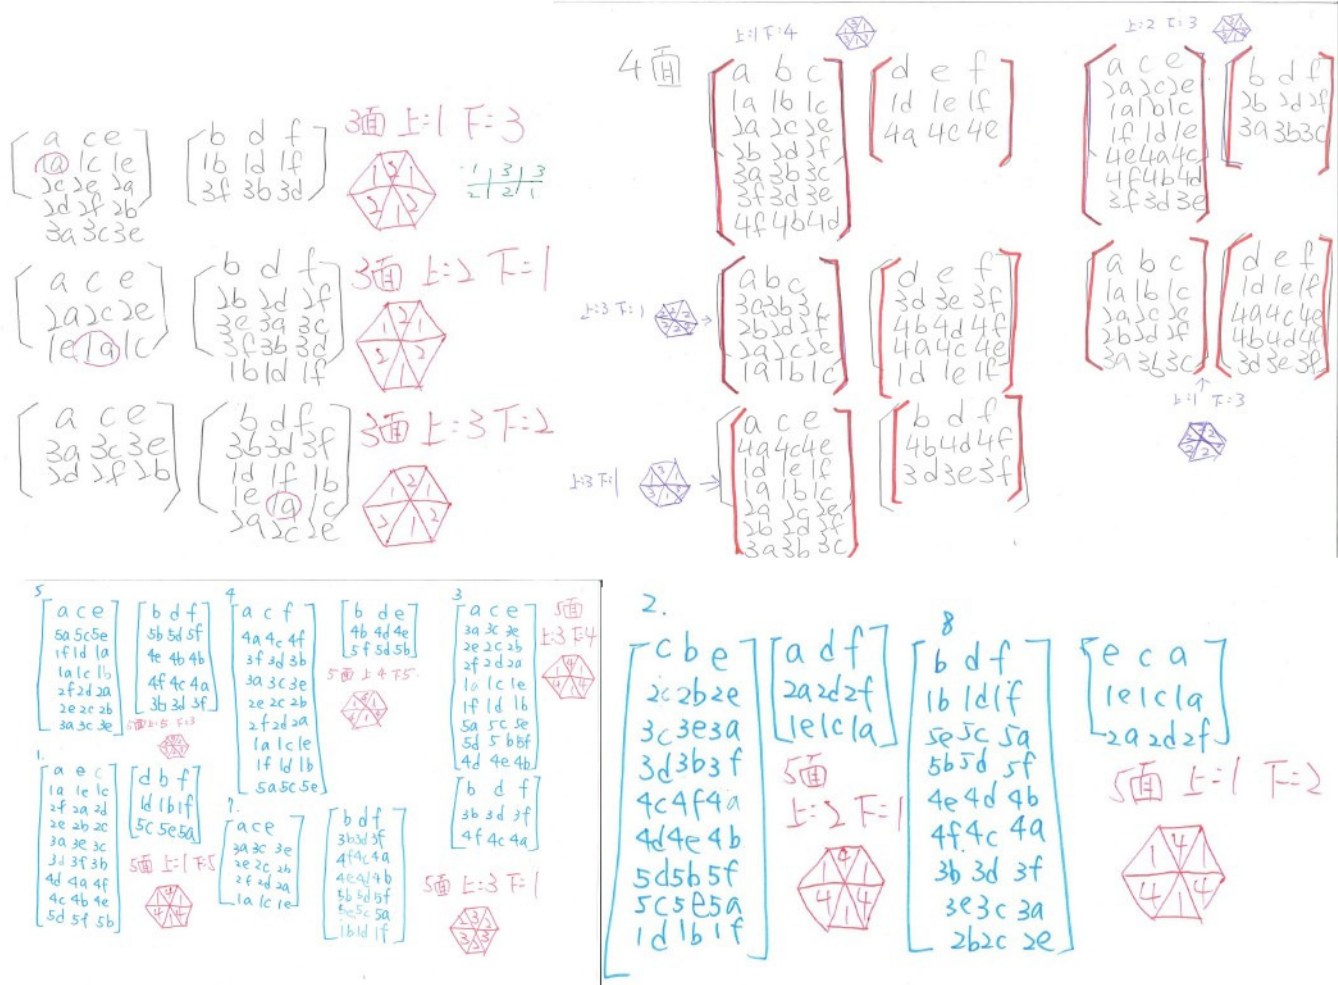 a c e
1a 1c 1e
2c 2e 2a
2d 2f 2b
3a 3c 3e
b d f
1b 1d 1f
3f 3b 3d
3面 上=1 下=3
1 3 1
2 1 2
1 3 3
2 2 1
a c e
2a 2c 2e
1e 1a 1c
b d f
2b 2d 2f
3e 3a 3c
3f 3b 3d
1b 1d 1f
3面 上=2 下=1
1 2 1
2 1 2
a c e
3a 3c 3e
2d 2f 2b
b d f
3b 3d 3f
1d 1f 1b
1e 1a 1c
2a 2c 2e
3面 上=3 下=2
1 2 1
2 1 2
4面
上:1 下:4
a b c
1a 1b 1c
2a 2c 2e
2b 2d 2f
3a 3b 3c
3f 3d 3e
4f 4b 4d
d e f
1d 1e 1f
4a 4c 4e
上:2 下:3
a c e
2a 2c 2e
1a 1b 1c
1f 1d 1e
4e 4a 4c
4f 4b 4d
3f 3d 3e
b d f
2b 2d 2f
3a 3b 3c
上:3 下:1
a b c
3a 3b 3c
2b 2d 2f
2a 2c 2e
1a 1b 1c
d e f
3d 3e 3f
4b 4d 4f
4a 4c 4e
1d 1e 1f
a b c
1a 1b 1c
2a 2c 2e
2b 2d 2f
3a 3b 3c
d e f
1d 1e 1f
4a 4c 4e
4b 4d 4f
3d 3e 3f
上:1 下:3
上:3 下:1
a c e
4a 4c 4e
1d 1e 1f
1a 1b 1c
2a 2c 2e
2b 2d 2f
3a 3b 3c
b d f
4b 4d 4f
3d 3e 3f
5
a c e
5a 5c 5e
1f 1d 1a
1a 1c 1b
2f 2d 2a
2e 2c 2b
3a 3c 3e
b d f
5b 5d 5f
4e 4b 4b
4f 4c 4a
3b 3d 3f
5面 上:5 下:3
4
a c f
4a 4c 4f
3f 3d 3b
3a 3c 3e
2e 2c 2b
2f 2d 2a
1a 1c 1e
1f 1d 1b
5a 5c 5e
b d e
4b 4d 4e
5f 5d 5b
5面 上4 下5
3
a c e
3a 3c 3e
2e 2c 2b
2f 2d 2a
1a 1c 1e
1f 1d 1b
5a 5c 5e
5d 5b 5f
4d 4e 4b
b d f
3b 3d 3f
4f 4c 4a
5面
上:3 下:4
1.
a e c
1a 1e 1c
2f 2a 2d
2e 2b 2c
3a 3e 3c
3d 3f 3b
4d 4a 4f
4c 4b 4e
5d 5f 5b
d b f
1d 1b 1f
5c 5e 5a
5面 上=1 下:5
7.
a c e
3a 3c 3e
2e 2c 2b
2f 2d 2a
1a 1c 1e
b d f
3b 3d 3f
4f 4c 4a
4e 4d 4b
5b 5d 5f
5e 5c 5a
1b 1d 1f
5面 上=3 下=1
2 3 2
3 2 3
2.
c b e
2c 2b 2e
3c 3e 3a
3d 3b 3f
4c 4f 4a
4d 4e 4b
5d 5b 5f
5c 5e 5a
1d 1b 1f
a d f
2a 2d 2f
1e 1c 1a
5面
上=2 下=1
1 4 1
4 1 4
8
b d f
1b 1d 1f
5e 5c 5a
5b 5d 5f
4e 4d 4b
4f 4c 4a
3b 3d 3f
3e 3c 3a
2b 2c 2e
e c a
1e 1c 1a
2a 2d 2f
5面 上=1 下=2
1 4 1
4 1 4